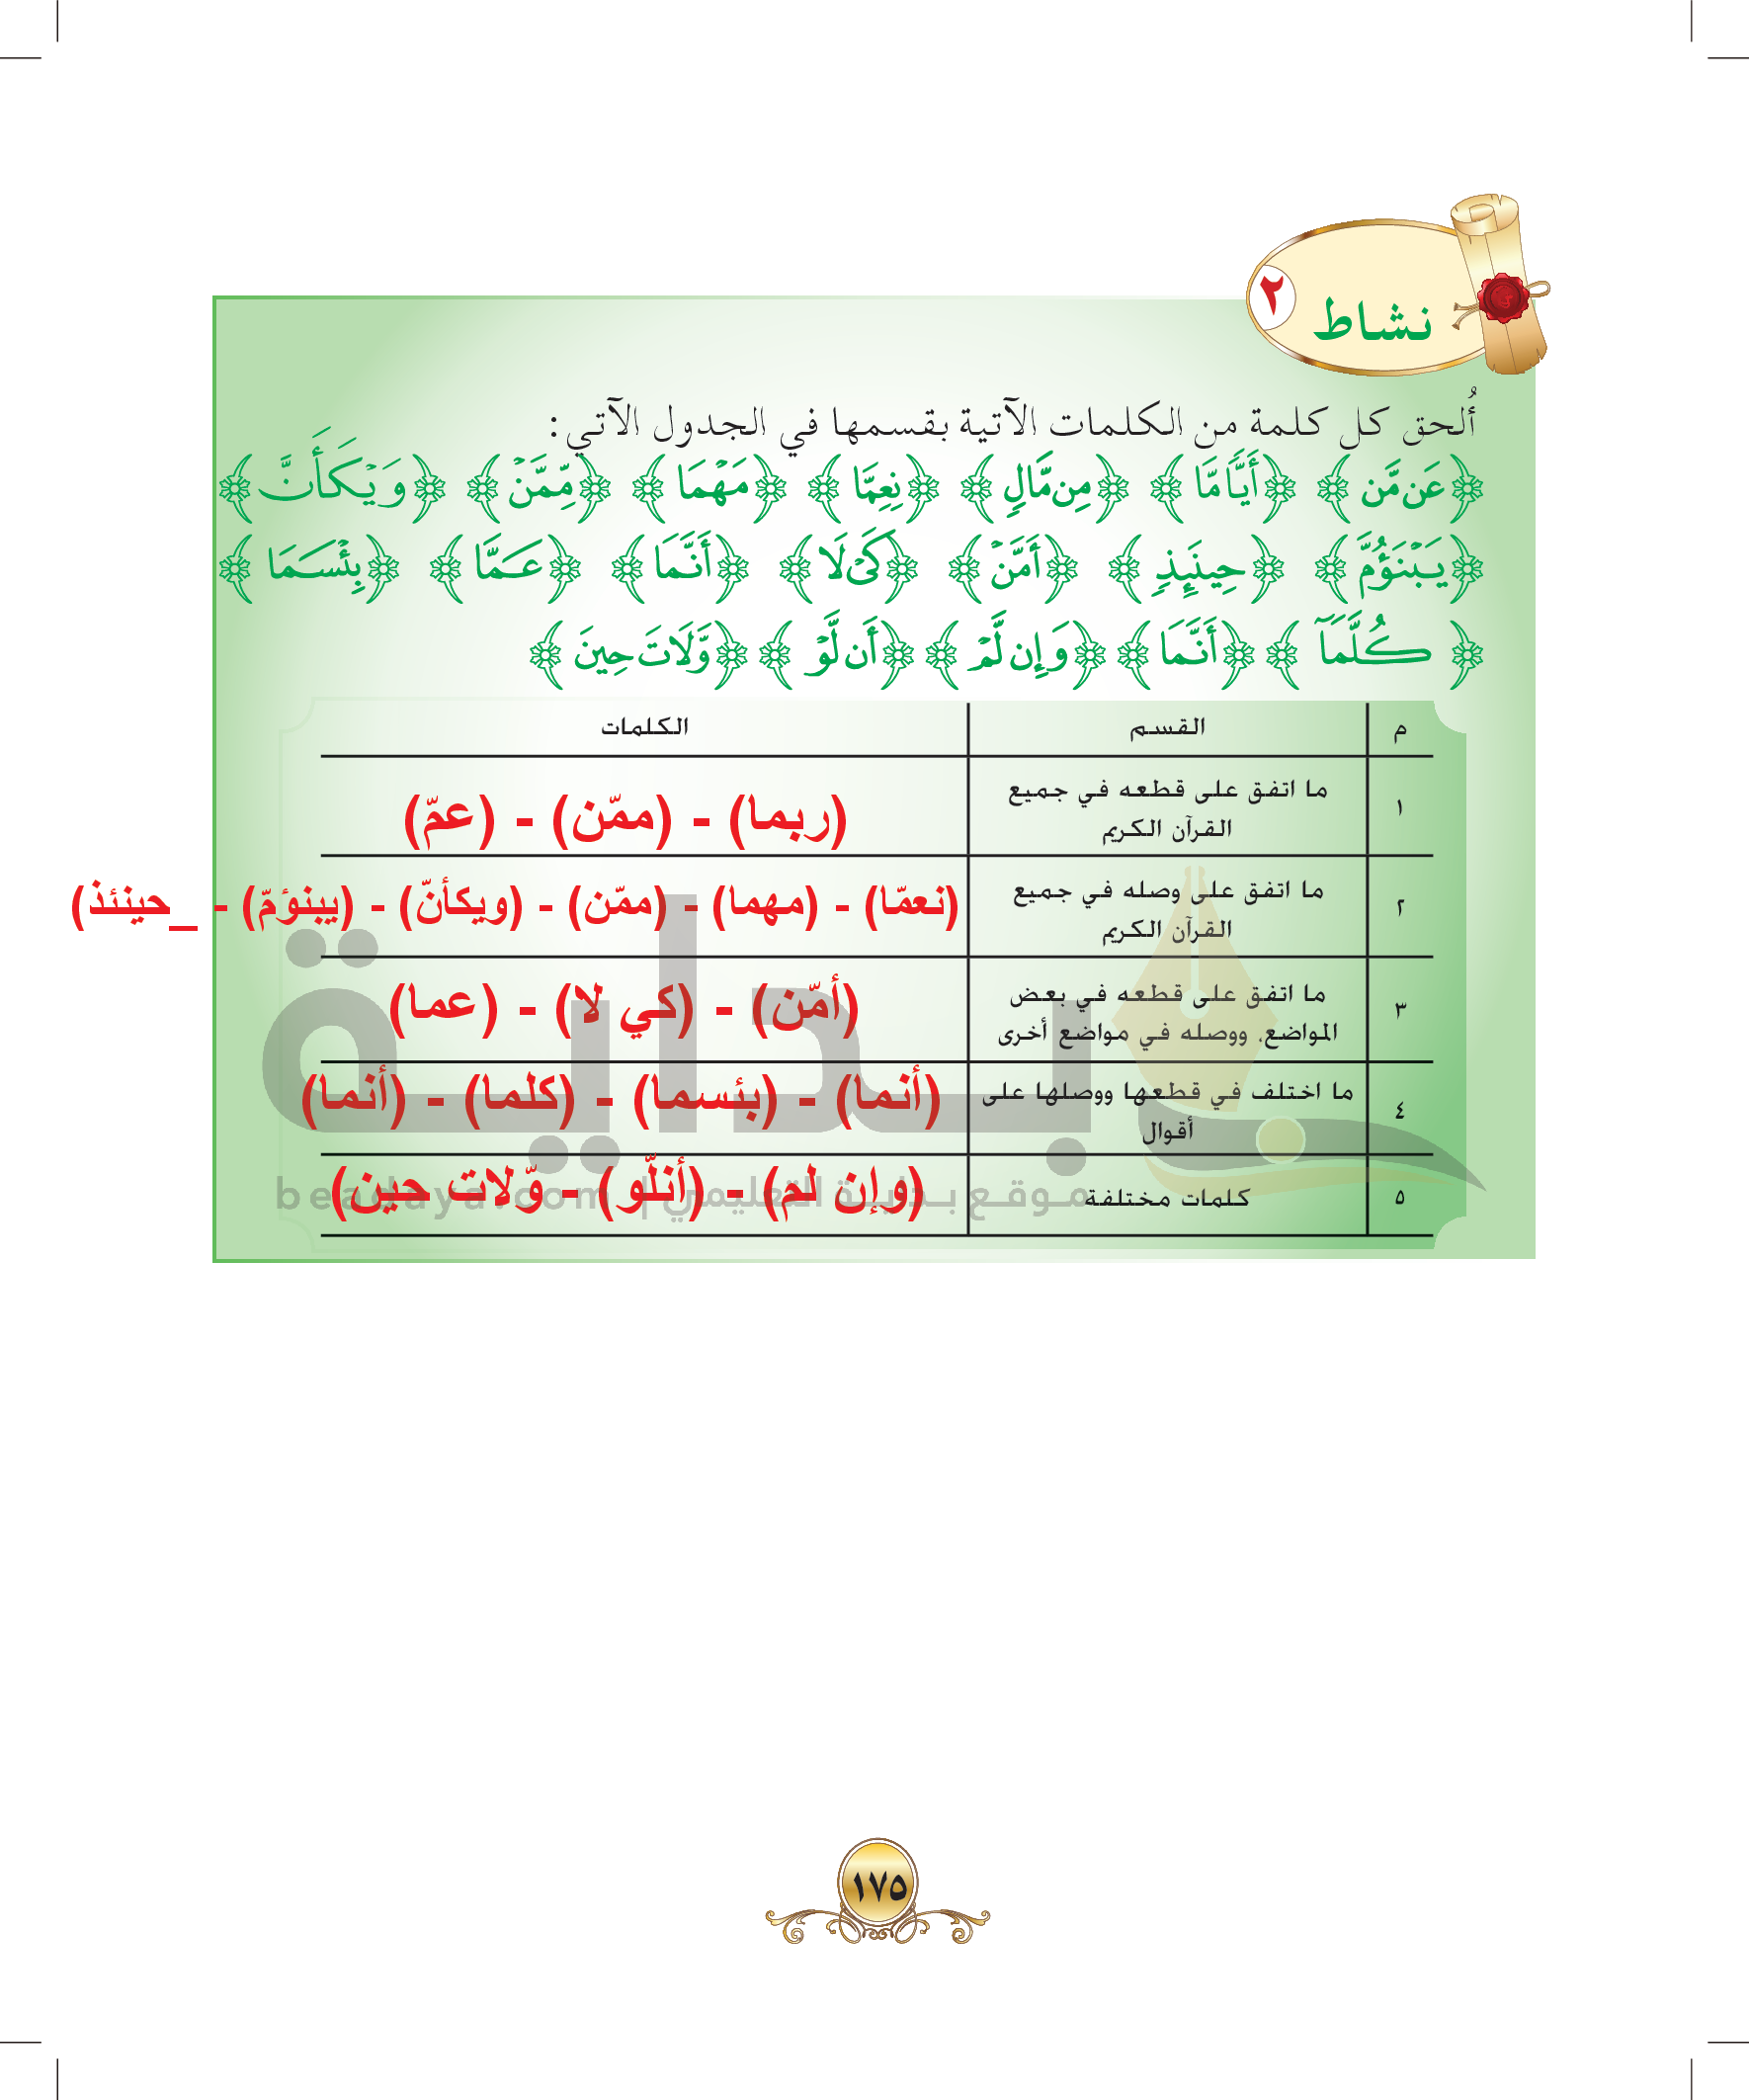 نشاط ٢
أُلحق كل كلمة من الكلمات الآتية بقسمها في الجدول الآتي:
﴿عَن مَّن﴾ ﴿أَيًّا مَّا﴾ ﴿مِن مَّالِ﴾ ﴿نِعِمَّا﴾ ﴿مَهْمَا﴾ ﴿مِّمَّنْ﴾ ﴿وَيْكَأَنَّ﴾
﴿يَبْنَؤُمَّ﴾ ﴿حِينَئِذٍ﴾ ﴿أَمَّنْ﴾ ﴿كَىْ لَا﴾ ﴿أَنَّمَا﴾ ﴿عَمَّا﴾ ﴿بِئْسَمَا﴾
﴿كُلَّمَآ﴾ ﴿أَنَّمَا﴾ ﴿وَإِن لَّمْ﴾ ﴿أَن لَّوْ﴾ ﴿وَّلَاتَ حِينَ﴾
م القسم الكلمات
١ ما اتفق على قطعه في جميع القرآن الكريم (ربما) - (ممّن) - (عمّ)
٢ ما اتفق على وصله في جميع القرآن الكريم (نعمّا) - (مهما) - (ممّن) - (ويكأنّ) - (يبنؤمّ) - _حينئذ)
٣ ما اتفق على قطعه في بعض المواضع، ووصله في مواضع أخرى (أمّن) - (كي لا) - (عما)
٤ ما اختلف في قطعها ووصلها على أقوال (أنما) - (بئسما) - (كلما) - (أنما)
٥ كلمات مختلفة (وإن لم) - (أنلّو) - وّلات حين)
بداية
موقع بداية التعليمي | beadaya.com
١٧٥